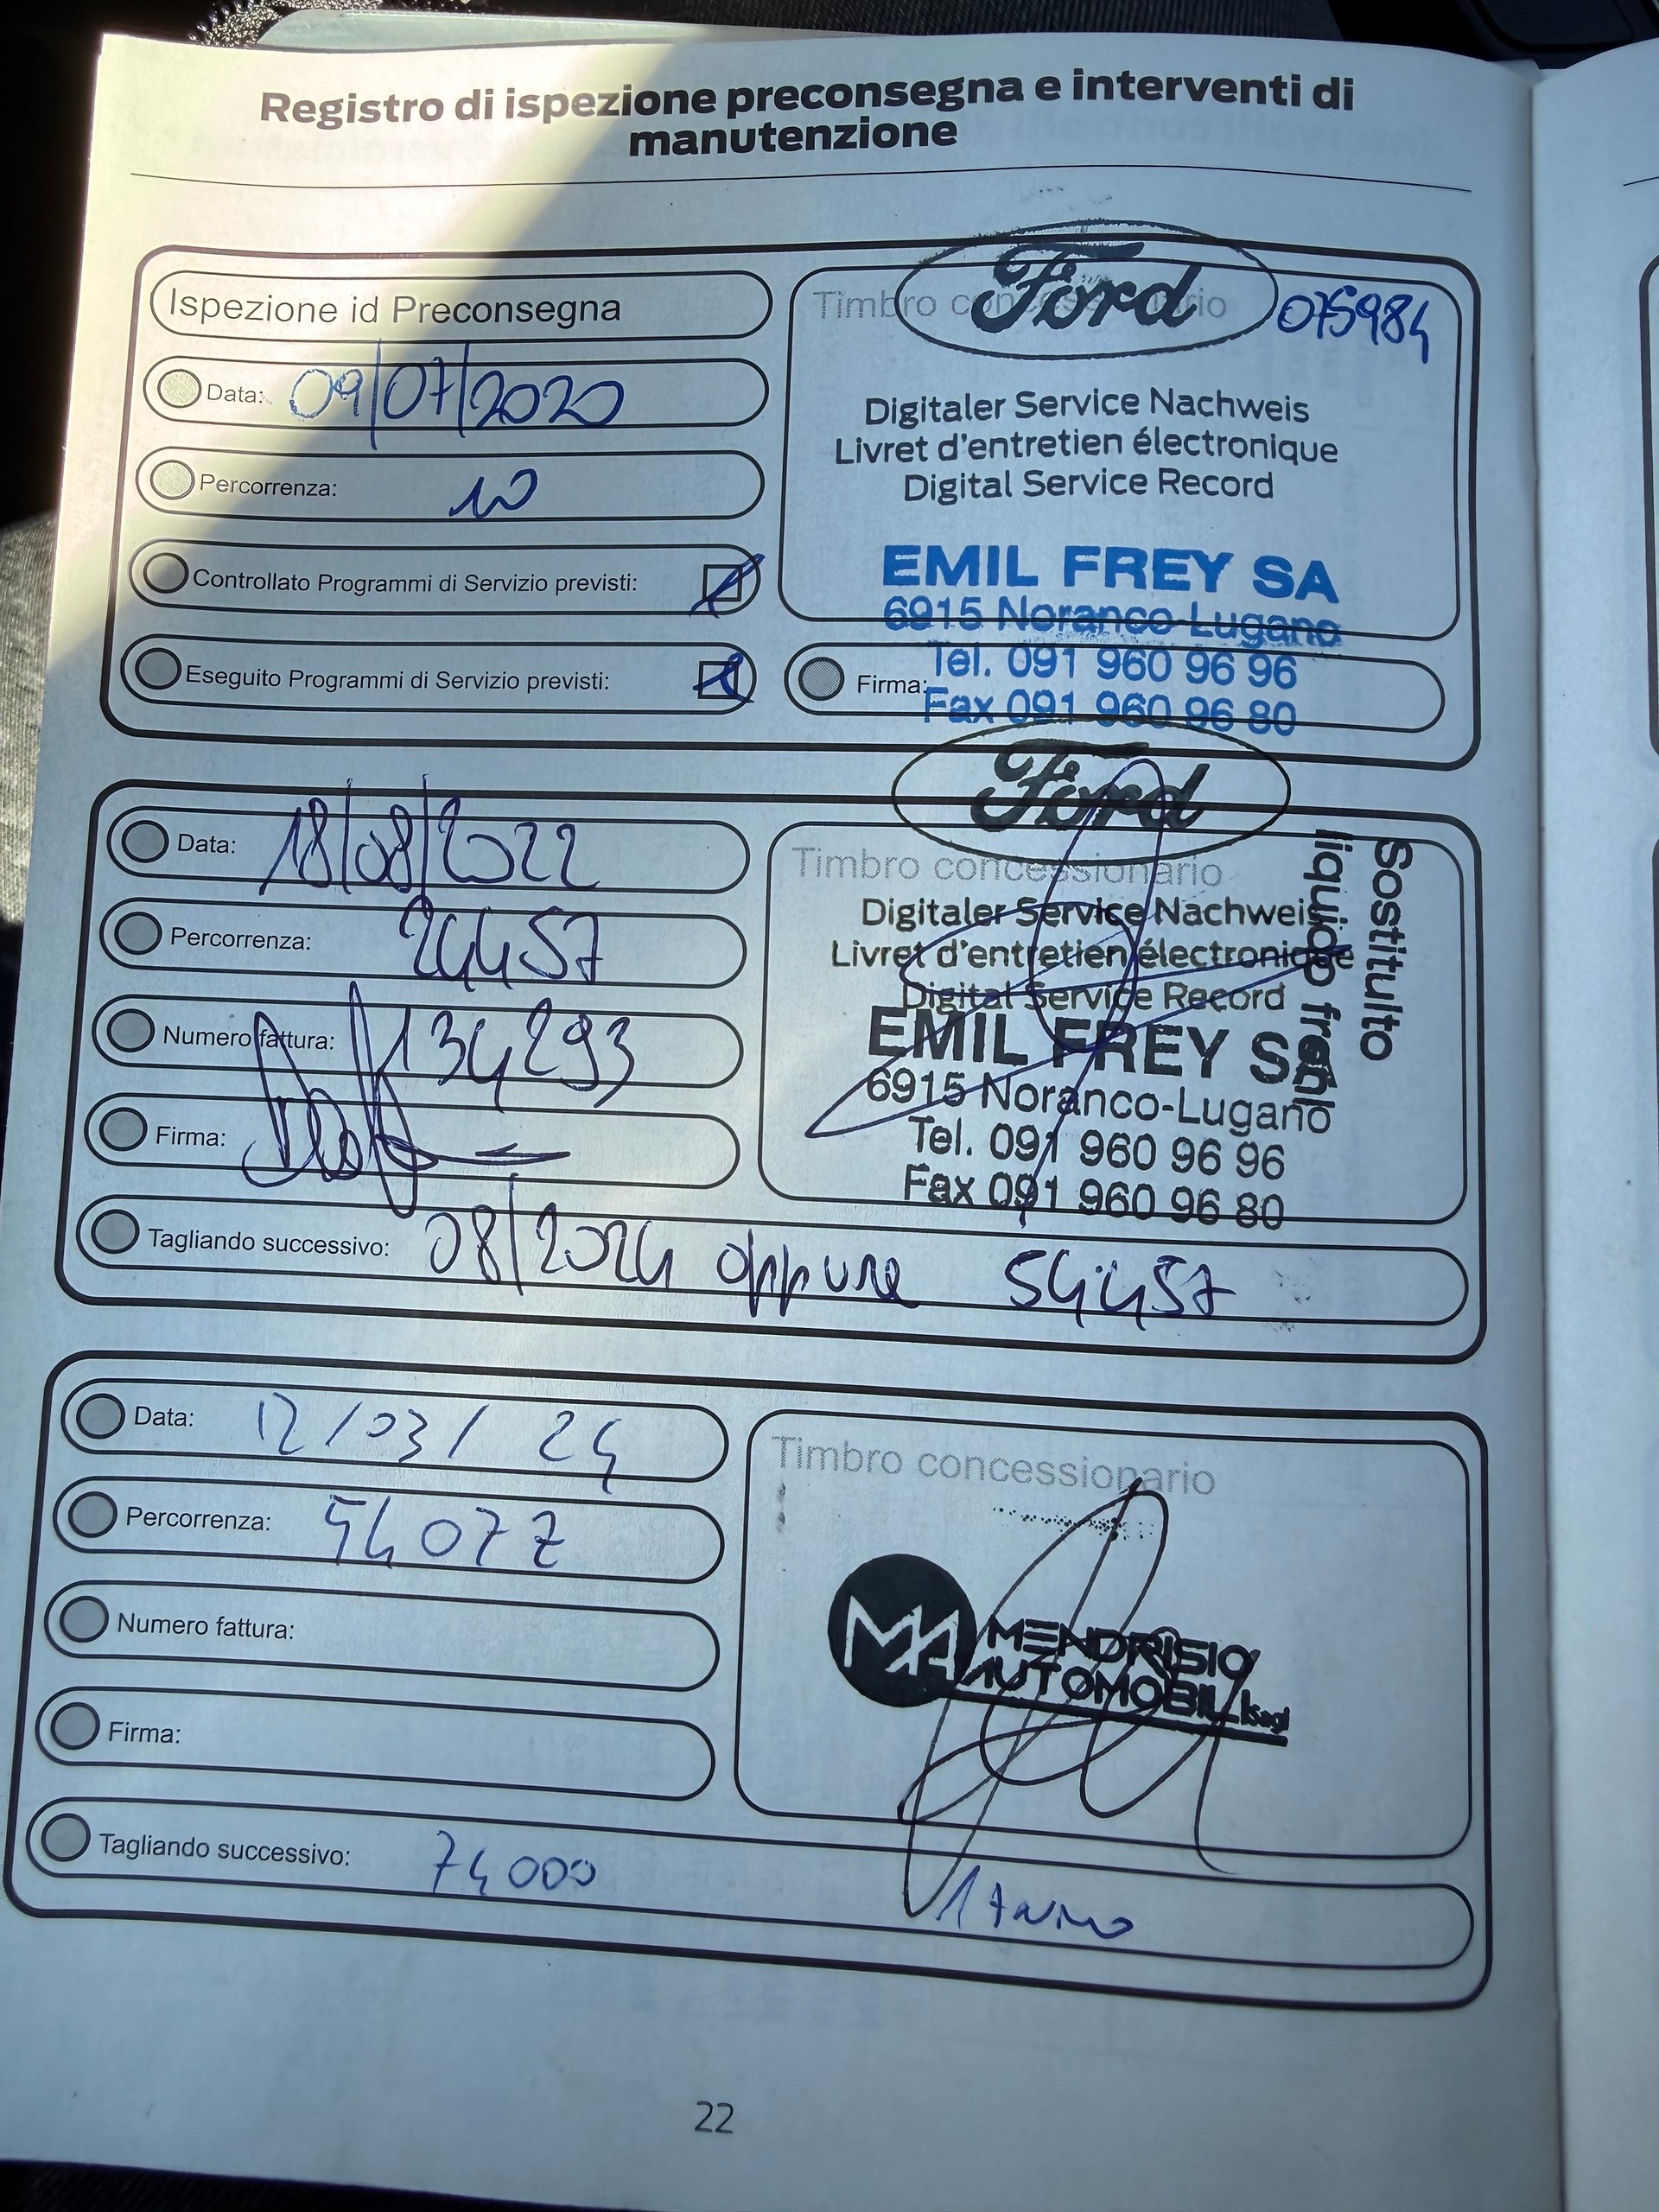 Registro di ispezione preconsegna e interventi di
manutenzione
Ispezione id Preconsegna
Data: 09/07/2020
Percorrenza: 10
Controllato Programmi di Servizio previsti:
Eseguito Programmi di Servizio previsti:
Timbro concessionario
Ford
075984
Digitaler Service Nachweis
Livret d'entretien électronique
Digital Service Record
EMIL FREY SA
6915 Noranco-Lugano
Tel. 091 960 96 96
Firma:
Fax 091 960 96 80
Data: 18/08/2022
Percorrenza: 24457
Numero fattura: 134293
Firma:
Ford
Timbro concessionario
Digitaler Service Nachweis
Livret d'entretien électronique
Digital Service Record
EMIL FREY SA
6915 Noranco-Lugano
Tel. 091 960 96 96
Fax 091 960 96 80
Sostituito
liquido freni
Tagliando successivo: 08/2024 oppure 54457
Data: 12/03/24
Percorrenza: 54077
Numero fattura:
Firma:
Timbro concessionario
MA
MENDRISIO
AUTOMOBILI sagl
Tagliando successivo: 74000
22